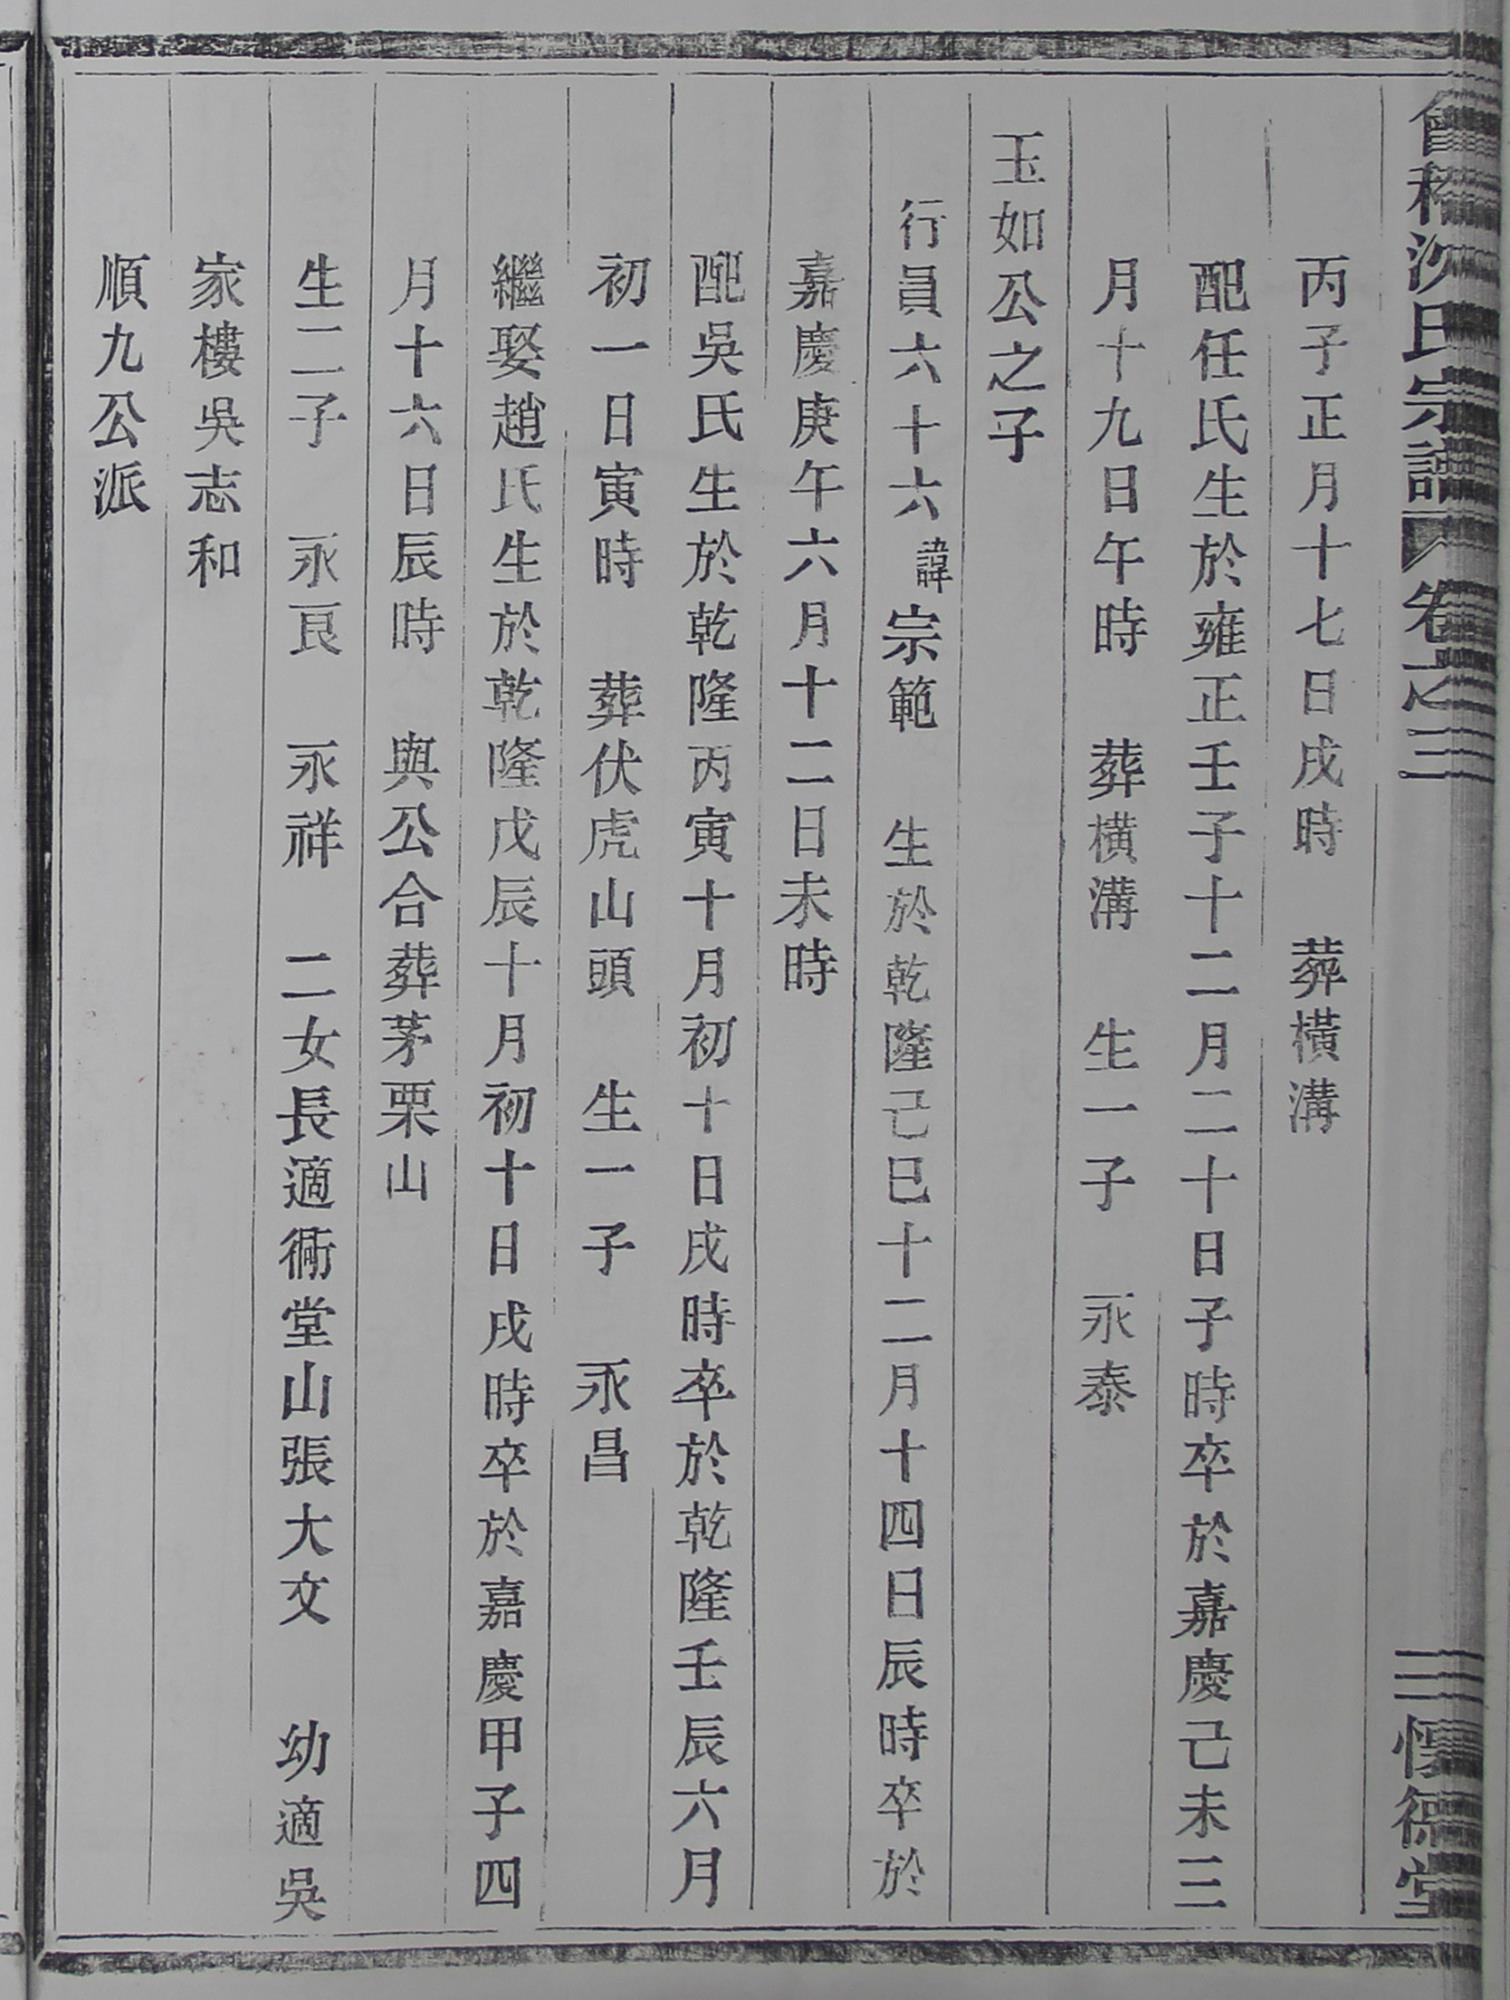 會稽沈氏宗譜 卷之三 二 慎德堂
丙子正月十七日戌時 葬橫溝
配任氏生於雍正壬子十二月二十日子時卒於嘉慶己未三
月十九日午時 葬橫溝 生一子 永泰
玉如公之子
行員六十六諱宗範 生於乾隆己巳十二月十四日辰時卒於
嘉慶庚午六月十二日未時
配吳氏生於乾隆丙寅十月初十日戌時卒於乾隆壬辰六月
初一日寅時 葬伏虎山頭 生一子 永昌
繼娶趙氏生於乾隆戊辰十月初十日戌時卒於嘉慶甲子四
月十六日辰時 與公合葬茅栗山
生二子 永良 永祥 二女長適衕堂山張大文 幼適吳
家樓吳志和
順九公派